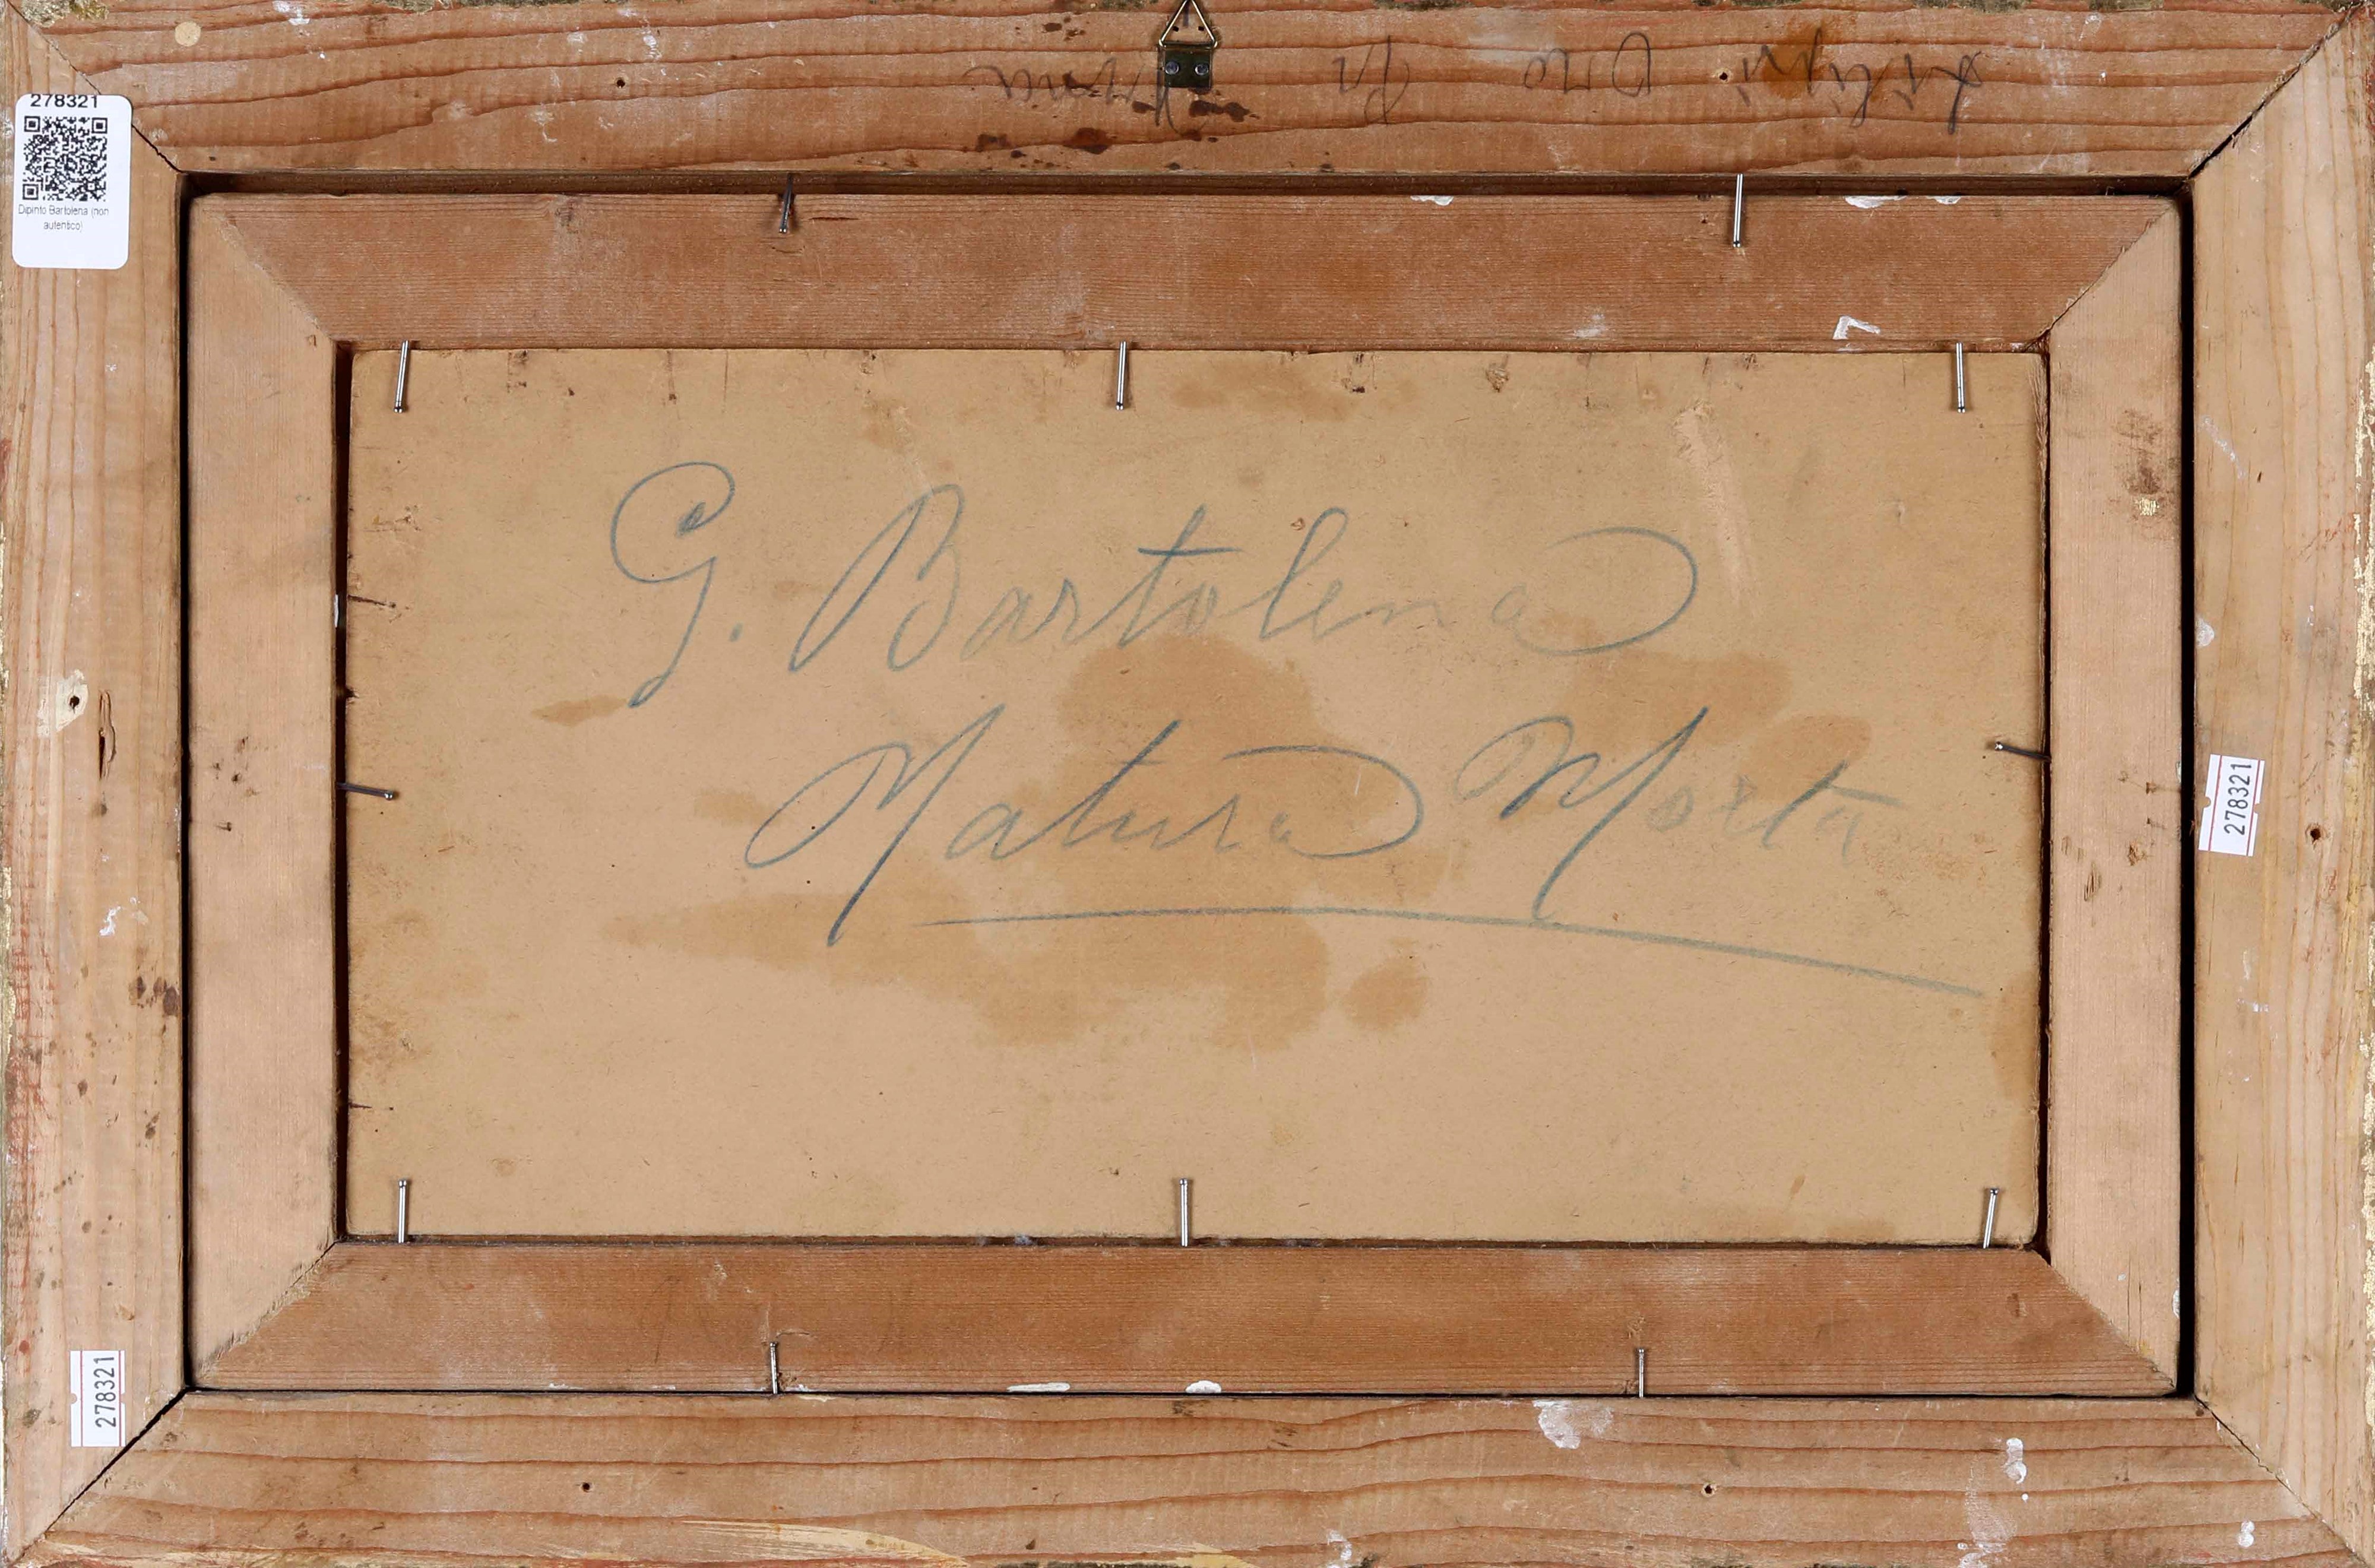 278321
Dipinto Bartolena (non
autentico)
G. Bartolena
Natura Morta
278321
278321